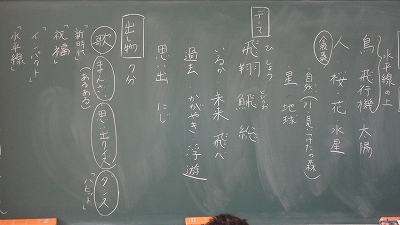 水平線の上
鳥 飛行機 太陽
人 桜 花 水星
自然(川 見つけたの森)
星 地球
テーマ
ひしょう
飛翔
いるか 未来 飛べ
過去 かがやき 浮遊
思い出 にじ
出し物 7分
歌
まんざい
(あるある)
思い出クイズ
ダンス
「新時代」
「祝福」
「インパクト」
「水平線」